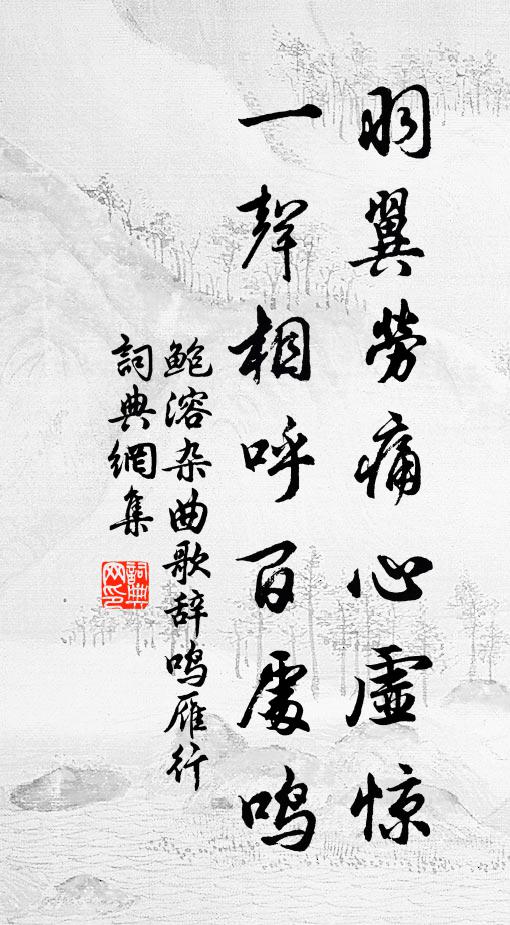 羽翼勞痛心虛惊
一聲相呼百處鸣
鲍溶杂曲歌辞鸣雁行
詞典網集
詞典
网印